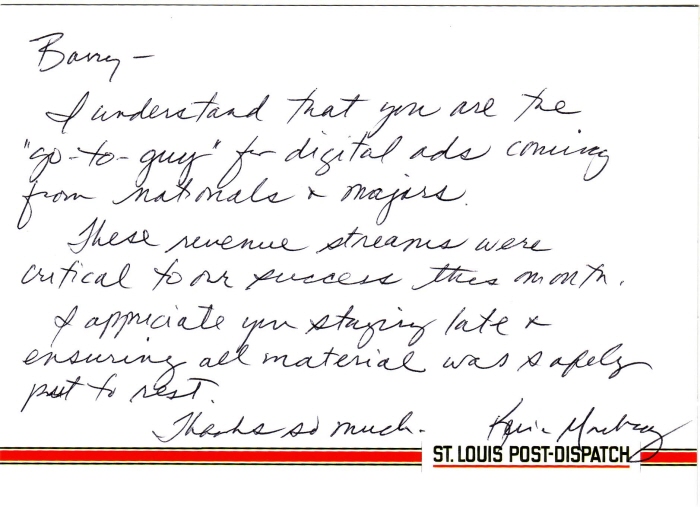 Barry –
I understand that you are the
"go-to-guy" for digital ads coming
from nationals & majors.
These revenue streams were
critical to our success this month.
I appreciate you staying late &
ensuring all material was safely
put to rest.
Thanks so much.
ST. LOUIS POST-DISPATCH